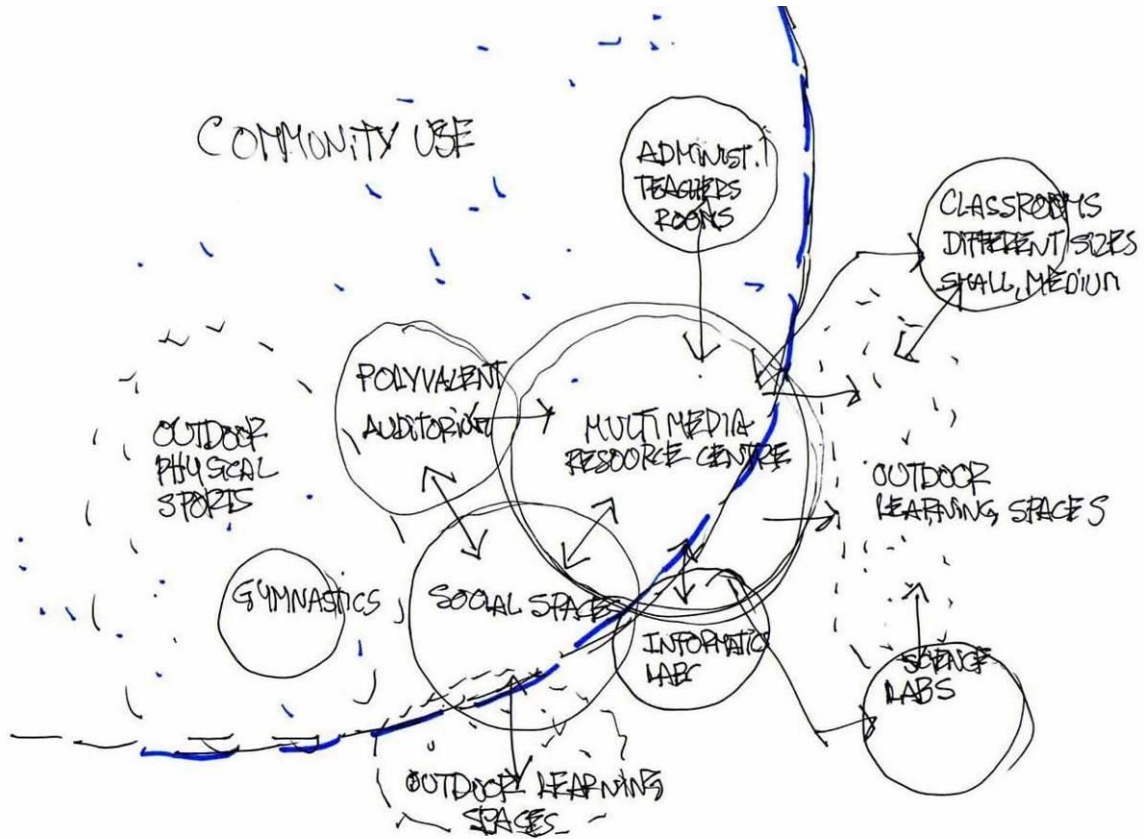 COMMUNITY USE
ADMINIST.
TEACHERS
ROOMS
CLASSROOMS
DIFFERENT SIZES
SMALL, MEDIUM
POLYVALENT
AUDITORIUM
MULTIMEDIA
RESOURCE CENTRE
OUTDOOR
PHYSICAL
SPORTS
OUTDOOR
LEARNING SPACES
GYMNASTICS
SOCIAL SPACES
INFORMATIC
LABS
SCIENCE
LABS
OUTDOOR LEARNING
SPACES